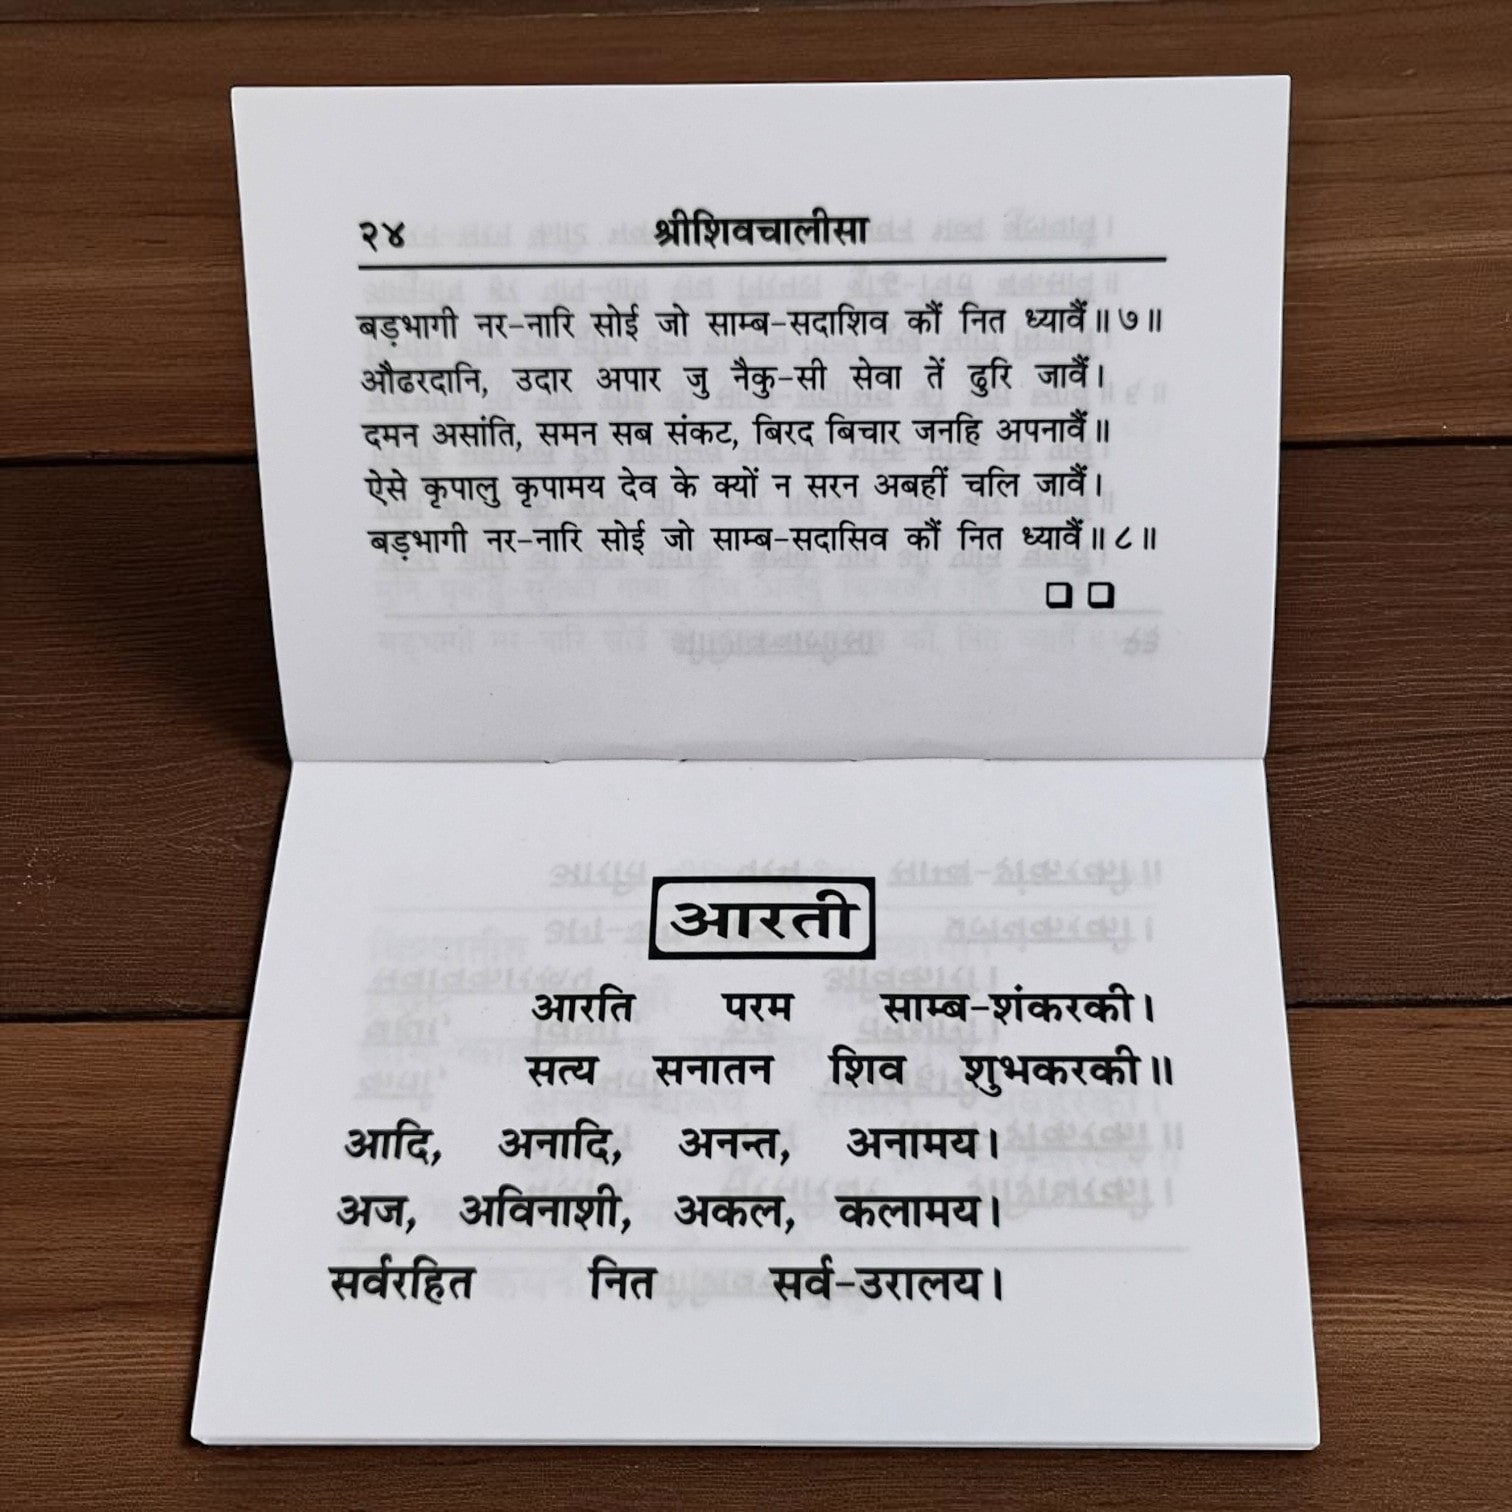 २४ श्रीशिवचालीसा
बड़भागी नर-नारि सोई जो साम्ब-सदाशिव कौं नित ध्यावैं॥ ७॥
औढरदानि, उदार अपार जु नैकु-सी सेवा तें ढुरि जावैं।
दमन असांति, समन सब संकट, बिरद बिचार जनहि अपनावैं॥
ऐसे कृपालु कृपामय देव के क्यों न सरन अबहीं चलि जावैं।
बड़भागी नर-नारि सोई जो साम्ब-सदासिव कौं नित ध्यावैं॥ ८॥
आरती
आरति परम साम्ब-शंकरकी।
सत्य सनातन शिव शुभकरकी॥
आदि, अनादि, अनन्त, अनामय।
अज, अविनाशी, अकल, कलामय।
सर्वरहित नित सर्व-उरालय।